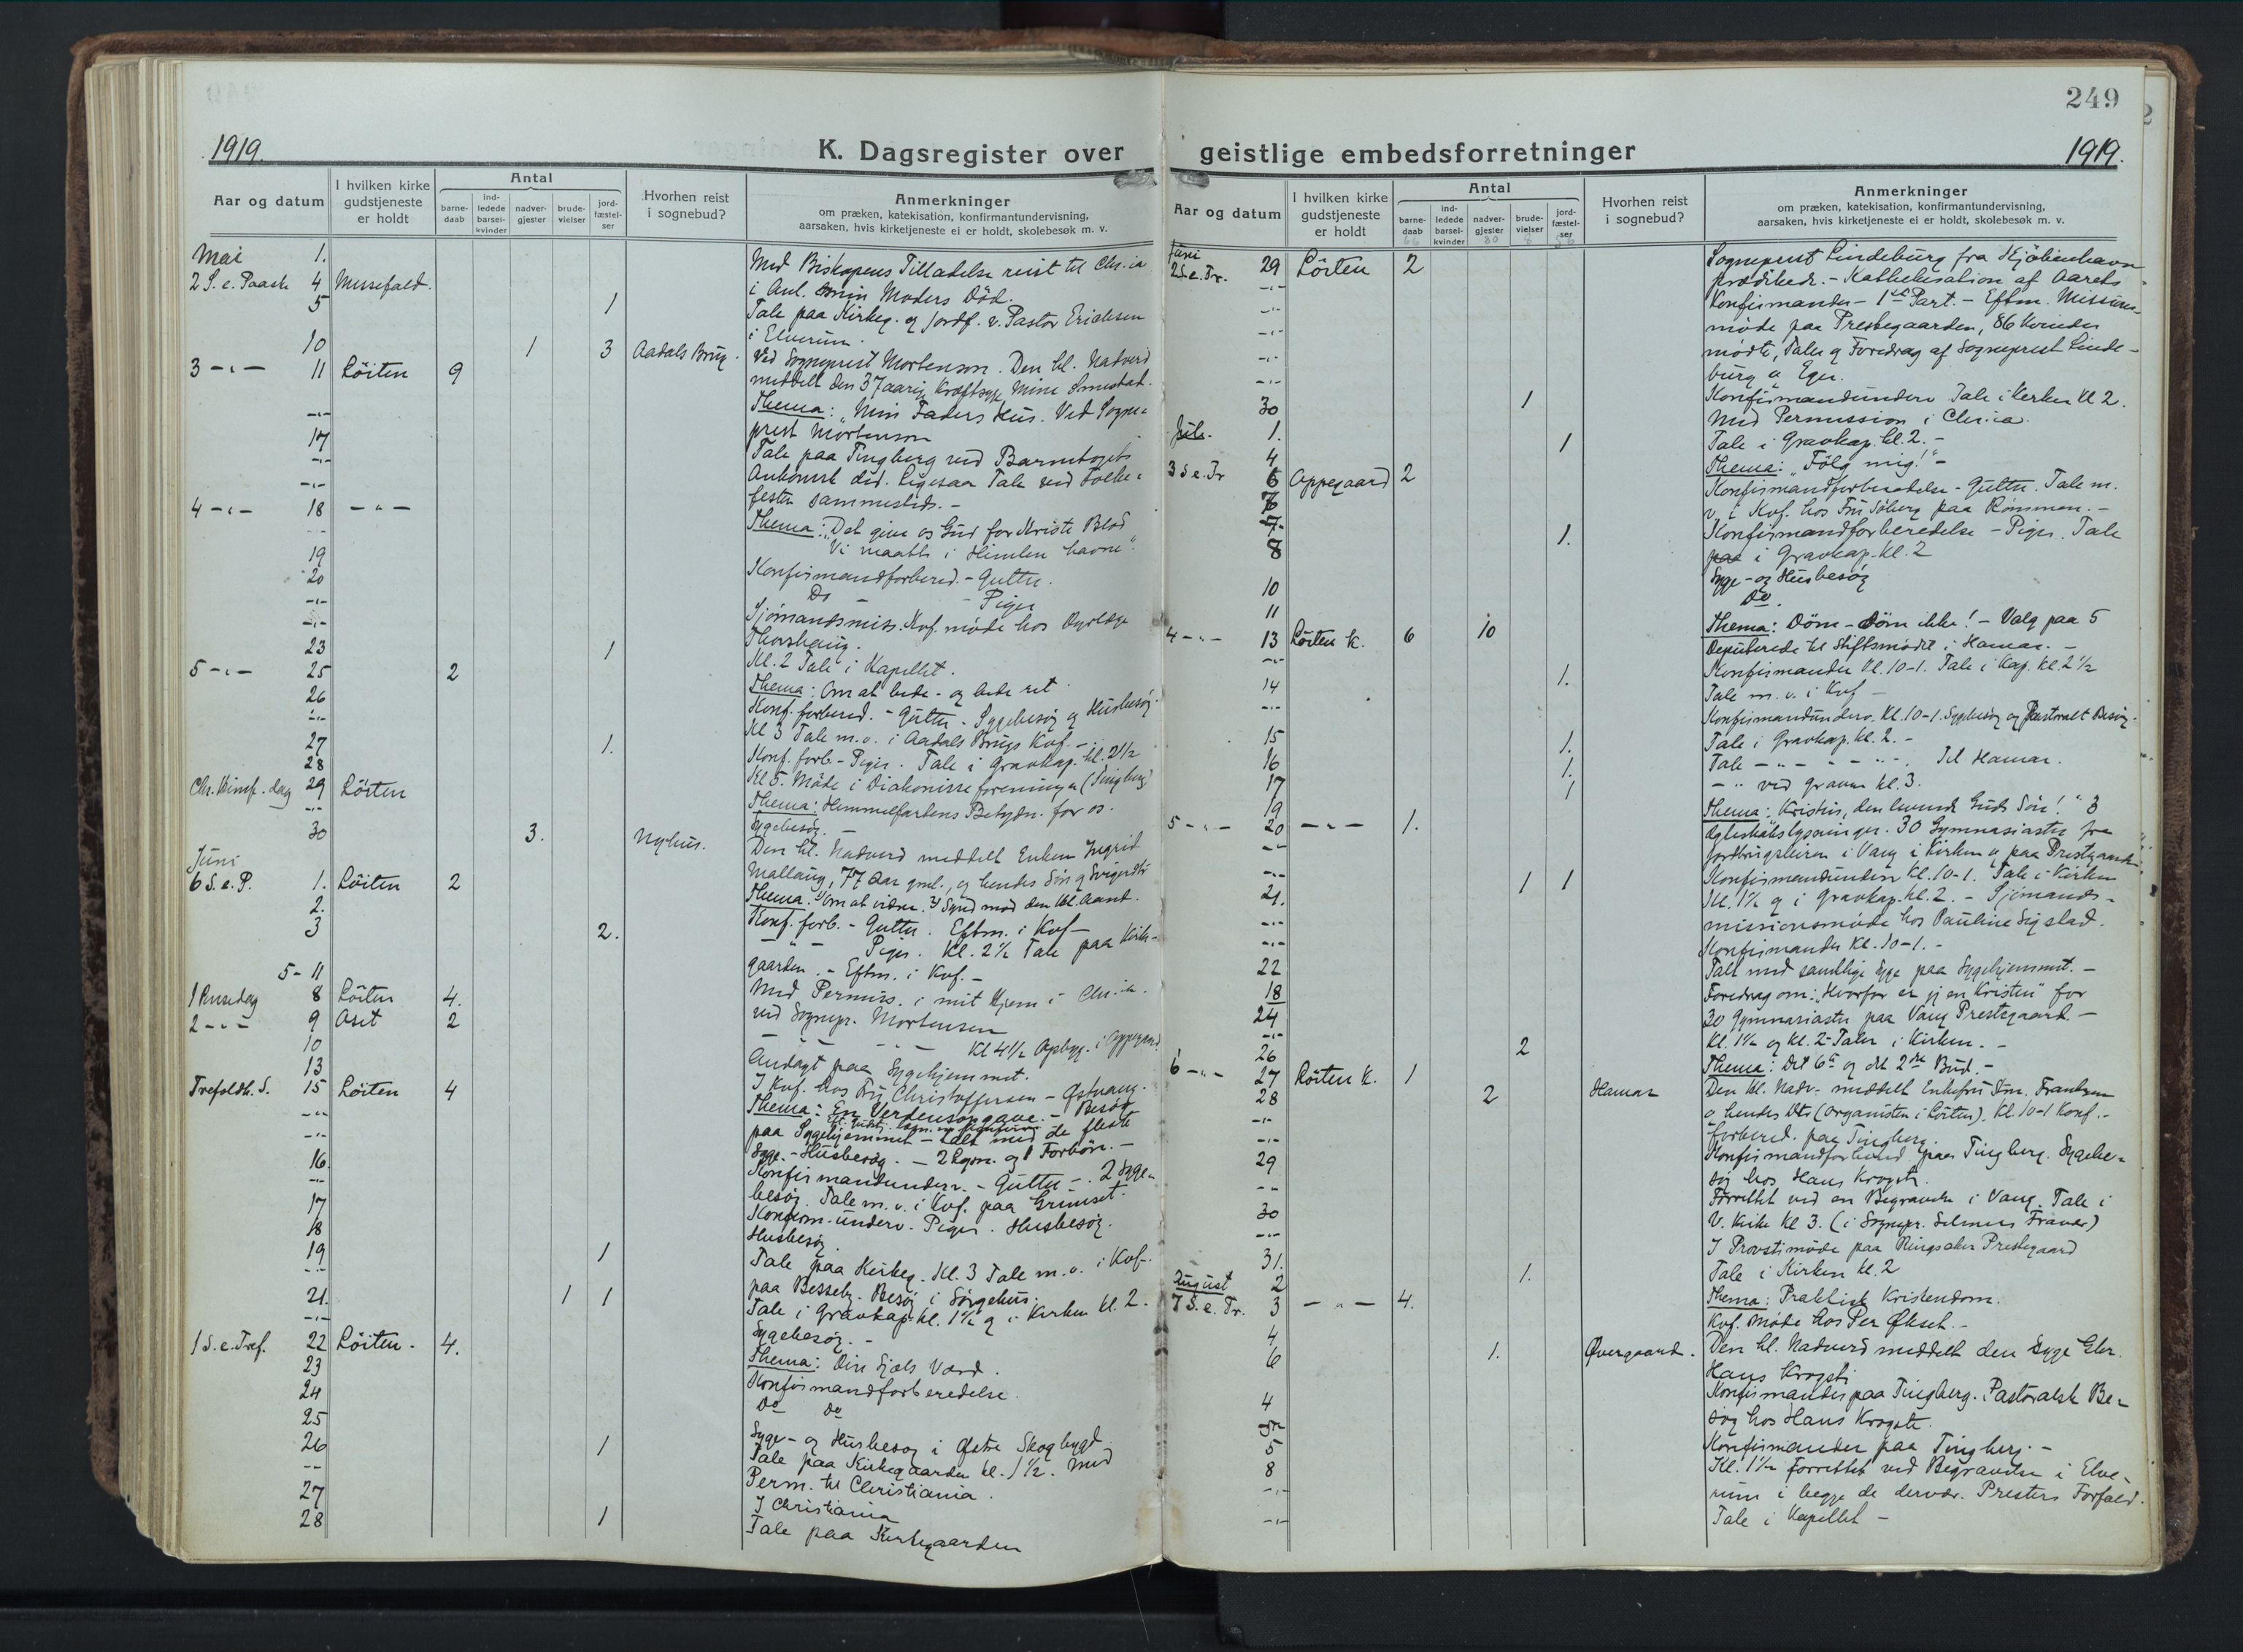 1919.
K. Dagsregister over
Aar og datum
I hvilken kirke gudstjeneste er holdt
Antal
barne-daab
ind-ledede barsel-kvinder
nadver-gjester
brude-vielser
jord-fæstel-ser
Hvorhen reist i sognebud?
Anmerkninger
om præken, katekisation, konfirmantundervisning,
aarsaken, hvis kirketjeneste ei er holdt, skolebesøk m. v.
Mai 1.
2 S. e. Paask 4 Mussefald. Med Biskopens Tilladelse reist til Chr.ia
5 1 i Anl. min Moders Död.
Tale paa Kirkeg. og jordf. v. Pastor Erichsen
i Elverum.
10 1 3 Aadals Brug. Ved Sogneprest Mortenson. Den hl. Nadverd
3 -"- 11 Löiten 9 meddelt den 37aarig Kræftsyge
-"- Thema: "Min Faders Hus. Ved Sogne-
17 prest Mortenson
-"- Tale paa Tingberg ved Barnetogets
-"- Ankomst did. Ligesaa Tale ved Folke-
4 -"- 18 -"- festen sammesteds. -
-"- Thema: "Det give os Gud for Kristi Blod
19 Vi maatte i Himlen havne".
20 Konfirmandforbered. - Gutter.
-"- Do - - Piger
-"- Sjömandsmiss. Kvf. møde hos Dyrlæge
23 1 Thorshaug.
5 -"- 25 2 Kl. 2 Tale i Kapellet.
26 Thema: Om at bede - og bede ret.
-"- Konf. forbered. - Gutter. Sygebesög og Husbesög.
27 1. Kl 3 Tale m.v. i Aadals Brugs Kvf. -
28 Konf. forb. - Piger. Tale i Gravkap. kl. 2 1/2
Chr. Himf. dag 29 Löiten Kl 5. Möde i Diakonisseforeningen (Tingberg)
-"- Thema: Himmelfartens Betydn. for os.
30 3. Nyhus. Sygebesög. -
Juni Den hl. Nadverd meddelt Enken Ingrid
6 S. e. P. 1. Löiten 2 Mallaug, 77 Aar gml., og hendes Sön og Svigerdtr
2. Thema: 1) Om at vidne. 2) Synd mod den hl. Aand.
3 2. Konf. forb. - Gutter. Eftm. i Kvf -
-"- Piger. Kl. 2 1/2 Tale paa Kirke-
5 - 11 gaarden. - Eftm. i Kvf. -
1 Pinsedag 8 Löiten 4. Med Permiss. i mit Hjem i Chr.ia.
2 -"- 9 Aset 2 ved Sognepr. Mortensen
10 -"- -"- Kl 4 1/2 Opbygg. i Oppegaard
13 Andagt paa Sygehjemmet.
Trefoldh. S. 15 Löiten 4 I Kvf. hos Fru Christoffersen - Östvang.
-"- Thema: En Verdensopgave. - Besög
-"- paa Sygehjemmet - talt med de fleste
16. Syge. - Husbesög. - 2 Lysn. og 1 Forbön. -
-"- Konfirmandunderv. - Gutter -. 2 Syge-
17 besög. Tale m. v. i Kvf. paa Grimset.
18 Konfirm-underv. Piger. Husbesög.
19 1 Husbesög
-"- Tale paa Kirkeg. Kl. 3 Tale m. v. i Kvf.
21. 1 1 paa Besseby. Besög i Sörgehus.
-"- Tale i Gravkap. kl. 1 1/2 og i Kirken kl. 2.
1 S. e. Tref. 22 Löiten. 4. Sygebesög. -
23 Thema: Din Sjæls Værd.
24 Konfirmandforberedelse.
25 Do Do
26 1 Syge- og Husbesög i Østre Skogbygd
-"- Tale paa Kirkegaarden kl. 1 1/2. Med
27 Perm. til Christiania.
28 1 I Christiania
Tale paa Kirkegaarden
249
geistlige embedsforretninger
1919.
Aar og datum
I hvilken kirke gudstjeneste er holdt
Antal
barne-daab
ind-ledede barsel-kvinder
nadver-gjester
brude-vielser
jord-fæstel-ser
Hvorhen reist i sognebud?
Anmerkninger
om præken, katekisation, konfirmantundervisning,
aarsaken, hvis kirketjeneste ei er holdt, skolebesøk m. v.
Juni Sogneprest Lindeburg fra Kjöbenhavn
2 S. e. Tr. 29 Löiten 2 prædikede. - Kathekisation af Aarets
-"- Konfirmander - 1ste Part. - Eftm. Missions-
-"- møde paa Prestegaarden, 86 Kvinder
-"- mödte, Taler og Foredrag af Sogneprest Linde-
-"- burg
-"- Konfirmandunderv. Tale i Kirken kl 2.
30 1 Med Permission i Chr.ia.
Juli. 1. 1 Tale i Gravkap. kl. 2. -
4 Thema: "Fölg mig!" -
3 S e. Tr 6 Oppegaard 2 Konfirmandforberedelse - Gutter. Tale m.
7 v. i Kvf. hos Fru Söberg paa Römmen. -
7. 1. Konfirmandforberedelse - Piger. Tale
8 i Gravkap. kl. 2
Syge- og Husbesög
10 Do.
11 Thema: Döm - döm ikke! - Valg paa 5
4 -"- 13 Löiten k. 6 10 Deputerede til Stiftsmödet i Hamar. -
-"- Konfirmander Kl. 10-1. Tale i Kap. kl. 2 1/2
14 1. Tale m. v. i Kvf -
-"- Konfirmandunderv. Kl. 10-1. Sygebesög og Pastoralt Besög.
15 1. Tale i Gravkap. kl. 2. -
16 1. Tale -"- -"- Til Hamar.
17 1 -"- ved graven kl. 3.
19 Thema: "Kristus, den levende Guds Sön!" 3
5 -"- 20 -"- 1. Ægteskabslysninger. 30 Gymnasiaster fra
-"- i Vang i Kirken og paa Prestgaarden.
-"- Konfirmandunderv Kl. 10-1. Tale i Kirken
21. 1 1 Kl. 1 1/2 og i Gravkap. kl. 2. - Sjömands-
-"- missionsmøde hos Pauline Sigstad.
-"- Konfirmander Kl. 10-1. -
22 Talt med samtlige Syge paa Sygehjemmet. -
18 Foredrag om: "Hvorfor er jeg en Kristen" for
24 30 Gymnasiaster paa Vang Prestegaard. -
-"- Kl. 1 1/2 og Kl. 2 Taler i Kirken. -
26 2 Thema: Det 6te og det 2det Bud. -
6 -"- 27 Löiten K. 1 Den hl. Nadv. meddelt Enkefru
28 2 Hamar & hendes Dtr (Organisten i Löiten). Kl. 10-1 Konf. -
-"- forbered. paa Tingberg.
-"- Konfirmandforbered paa Tingberg. Sygebe-
29 søg hos Hans Krogsti.
-"- Forrettet ved en Begravelse i Vang. Tale i
30 V. Kirke Kl 3. (i Sognepr. Selmers Fravær)
-"- I Provstimöde paa Ringsaker Prestegaard
31. Tale i Kirken kl. 2
August 2 1. Thema: Praktisk Kristendom.
7 S. e. Tr. 3 -"- 4. Kvf. Møde hos Per Økset. -
4
6 1. Øvergaard. Den hl. Nadverd meddelt den syge Gbr.
Hans Krogsti
4 Konfirmander paa Tingberg. Pastoralsk Be-
søg hos Hans Krogsti.
5 Konfirmander paa Tingberg. -
8 Kl. 1 1/2 Forrettet ved Begravelse i Elve-
-"- rum i begge de derv. Presters Forfald.
-"- Tale i Kapellet -